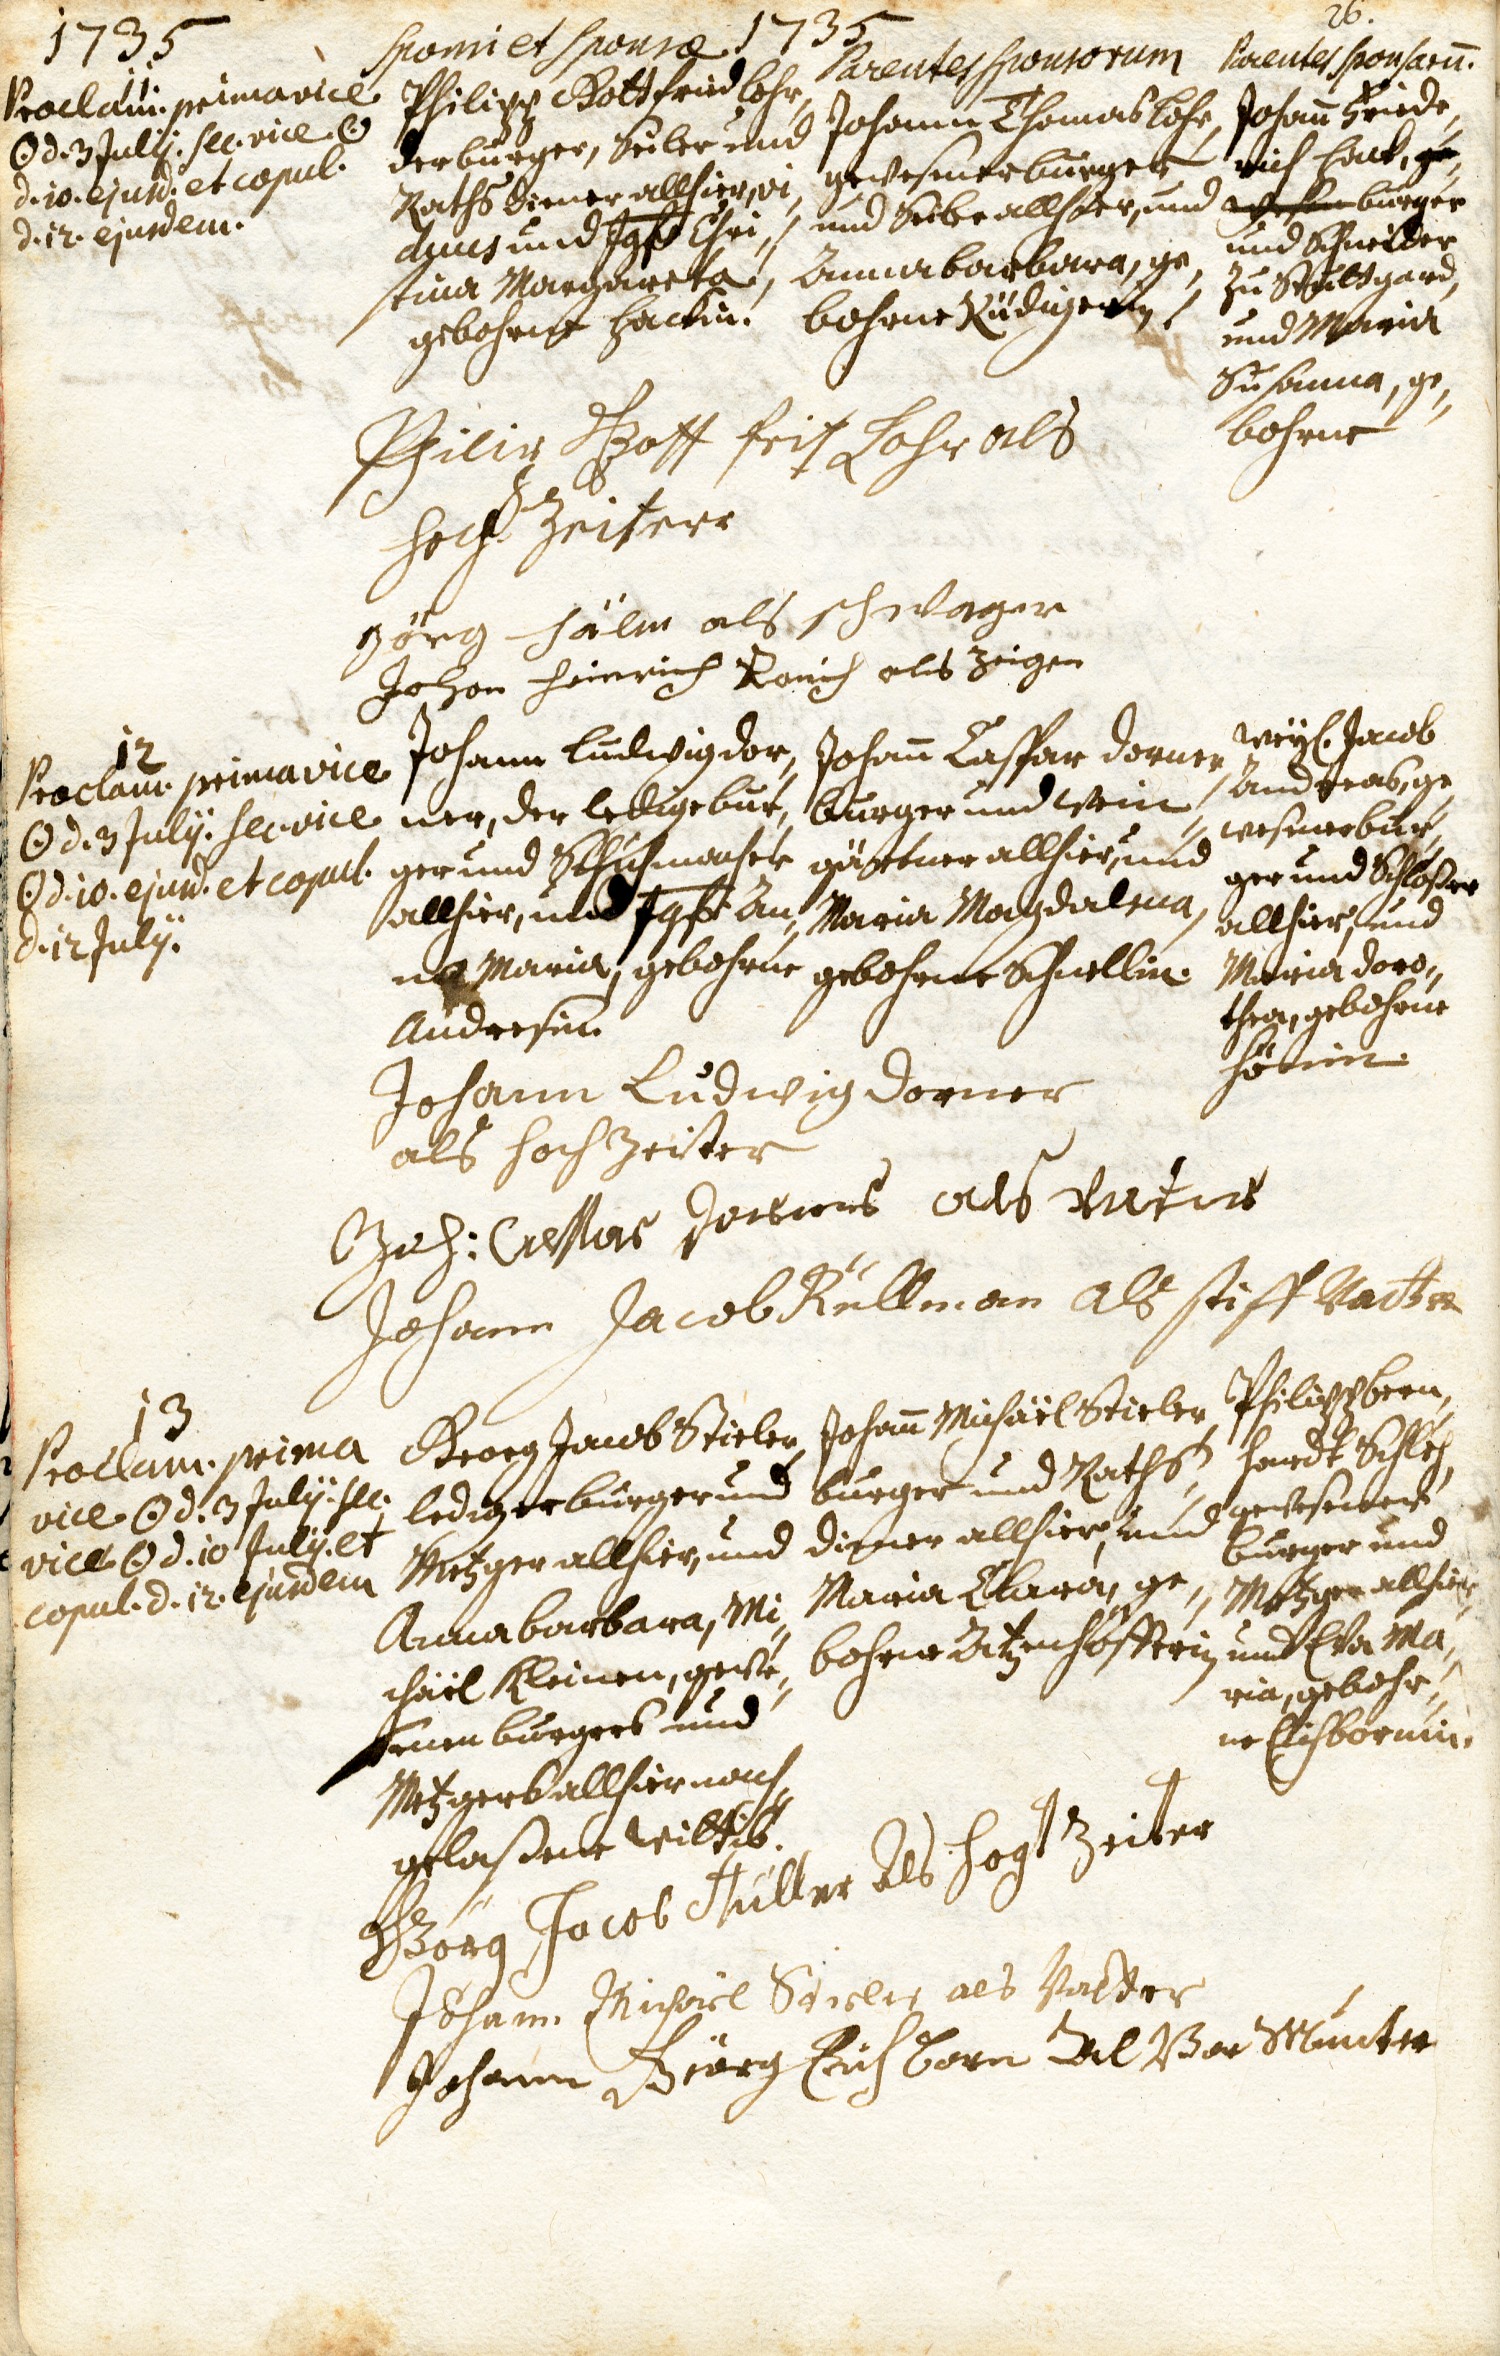 1735
Sponsi et Sponsæ 1735
Parentes Sponsorum
26.
Parentes Sponsarū.
11.
Proclam. prima vice
☉ d. 3 July. sec. vice ☉
d. 10. ejusd. et copul.
d. 12. ejusdem.
Philipp Gottfried Lohr,
der burger, Seiler und
Raths diener allhier, vi,
duus und Jgfr Chri,,
stina Margareta,
gebohrne Hackin.
Johann Thomas Lohr,
gewesener burger
und Seiler allhier, und
Anna barbara, ge,
bohrne Rüdigerin.
Johan̄ Friede,
rich Hack, ge,
wesen burger
und Schneider
zu Stuttgard,
und Maria
Susanna, ge,,
bohrne
Philip Gott frit Lohr als
hoch Zeiterr
görg hälm als schwager
Johan Heinrich Rauch als Zeigen
12
Proclam. prima vice
☉ d. 3 July. sec. vice
☉ d. 10. ejusd. et copul.
d. 12 July.
Johann Ludwig Dor,
ner, der ledige bur,
ger und Schuhmacher
allhier, und Jgfr An,,
na Maria, gebohrne
Andresin.
Johan̄ Caspar Dorner
burger und Wein,,
gärtner allhier, und
Maria Magdalena,
gebohrne Schnellin.
weyl. Jacob
Andreas, ge,
wesener bur,
ger und Schloßer
allhier, und
Maria Doro,,
thea, gebohrne
Johann Ludwig Dorner
als hoch Zeiter
Joh: Casper Dorner als Vatter
Johann Jacob Küllman als stiff Vatter
13
Proclam. prima
vice ☉ d. 3 July. sec.
vice ☉ d. 10 July. et
copul. d. 12. ejusdem
Georg Jacob Stieler
lediger burger und
Metzger allhier, und
Anna barbara, Mi,,
chäel Kleinen, gewe,,
senen burgers und
Metzgers allhier nach,,
gelaßene Wittib.
Johan̄ Michäel Stieler
burger und Raths,
diener allhier, und
Maria Clara, ge,,
bohrne Atzenhöfferin
Philipp bern,
hardt Schley,
gewesener
burger und
Metzger allhier,
und Eva Ma,,
ria, gebohr,,
ne Eichbornin.
Görg Jacob Stüller als hogt Zeiter
Johann Michäel Stieler als Vatter
Johann Görg Eichborn Al Vor Munter